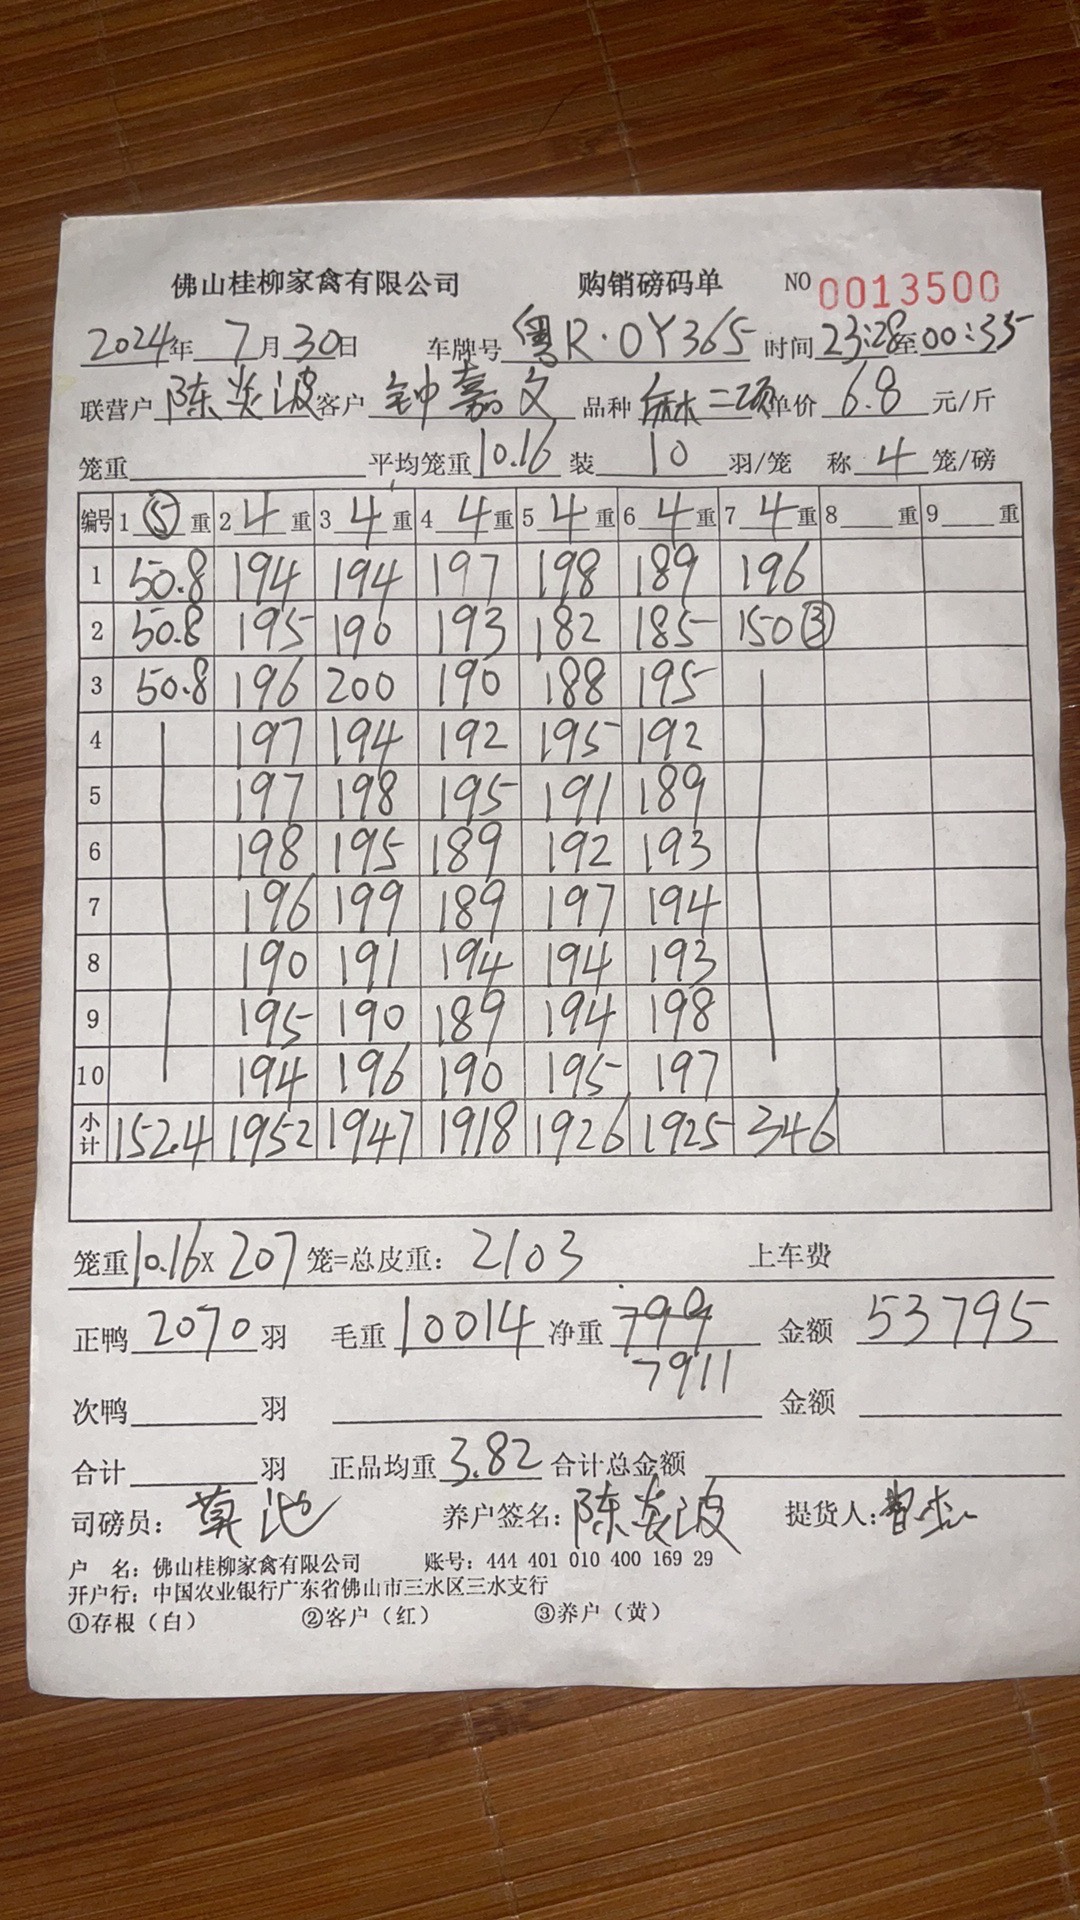 佛山桂柳家禽有限公司 购销磅码单 NO 0013500
2024年 7月 30日 车牌号 粤R·0Y365 时间 23:28至00:35
联营户 陈炎波 客户 钟嘉文 品种 麻二项 单价 6.8 元/斤
笼重 平均笼重 10.16 装 10 羽/笼 称 4 笼/磅
编号 1 ⑤ 重 2 4 重 3 4 重 4 4 重 5 4 重 6 4 重 7 4 重 8 重 9 重
1 50.8 194 194 197 198 189 196
2 50.8 195 190 193 182 185 150③
3 50.8 196 200 190 188 195
4 197 194 192 195 192
5 197 198 195 191 189
6 198 195 189 192 193
7 196 199 189 197 194
8 190 191 194 194 193
9 195 190 189 194 198
10 194 196 190 195 197
小计 152.4 1952 1947 1918 1926 1925 346
笼重 10.16 X 207 笼=总皮重: 2103 上车费
正鸭 2070 羽 毛重 10014 净重 799 金额 53795
7911
次鸭 羽 金额
合计 羽 正品均重 3.82 合计总金额
司磅员: 莫池 养户签名: 陈炎波 提货人:
户 名: 佛山桂柳家禽有限公司 账号: 444 401 010 400 169 29
开户行: 中国农业银行广东省佛山市三水区三水支行
①存根（白） ②客户（红） ③养户（黄）